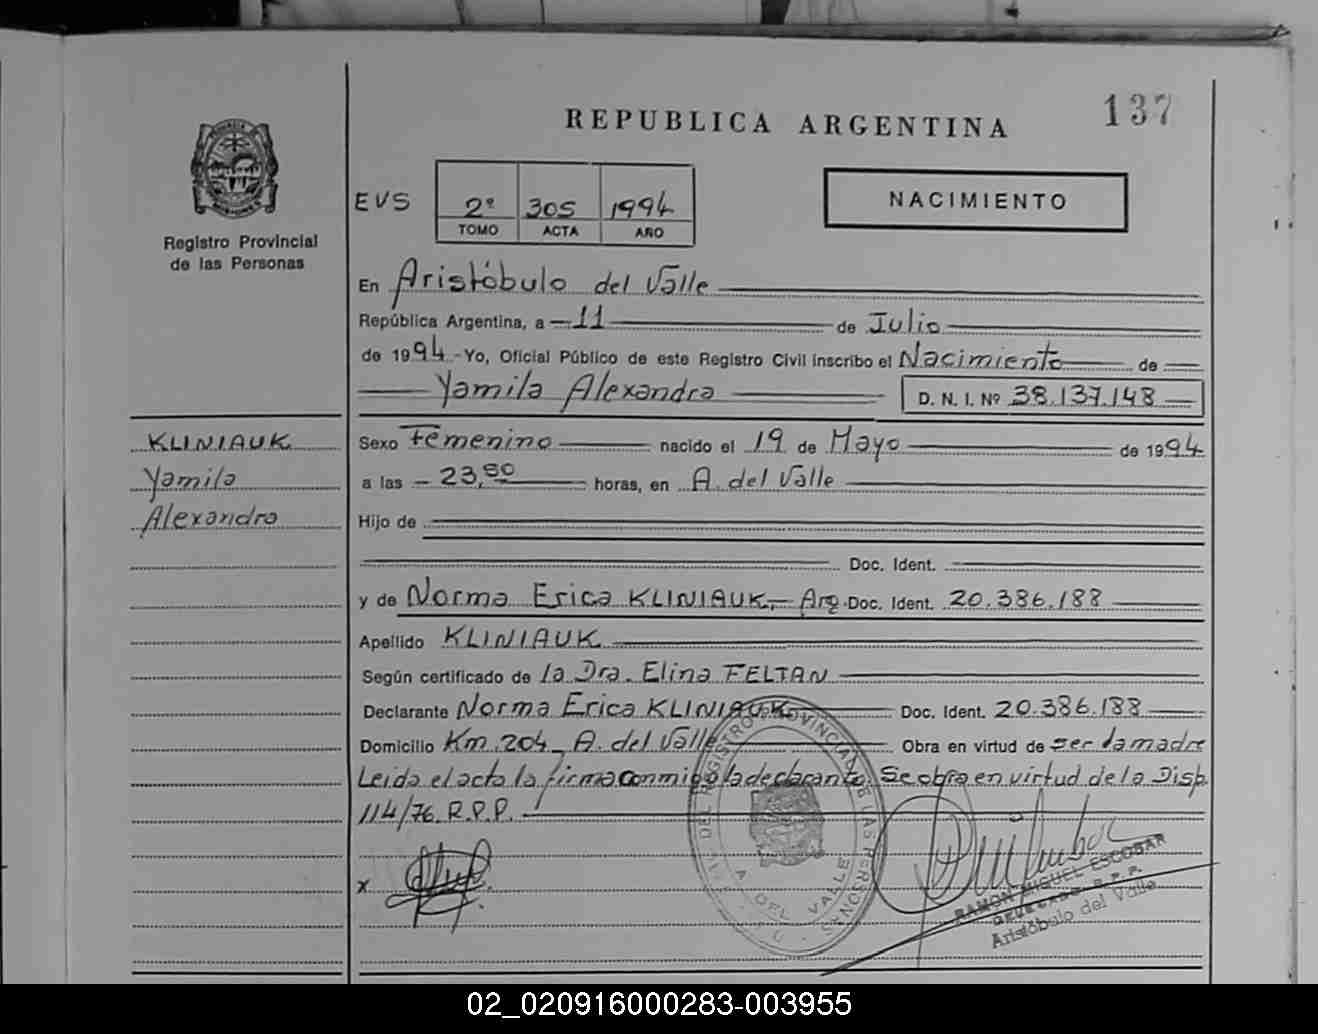 137
REPUBLICA ARGENTINA
NACIMIENTO
PROVINCIA DE
MISIONES
Registro Provincial
de las Personas
EVS
2º 305 1994
TOMO ACTA AÑO
En Aristóbulo del Valle
República Argentina, a 11 de Julio
de 1994 - Yo, Oficial Público de este Registro Civil inscribo el Nacimiento de
Yamila Alexandra D. N. I. Nº 38.137.148
KLINIAUK
Yamila
Alexandra
Sexo Femenino nacido el 19 de Mayo de 1994
a las 23,50 horas, en A. del Valle
Hijo de
Doc. Ident.
y de Norma Erica KLINIAUK, Arg. Doc. Ident. 20.386.188
Apellido KLINIAUK
Según certificado de la Dra. Elina FELTAN
Declarante Norma Erica KLINIAUK Doc. Ident. 20.386.188
Domicilio Km. 204 - A. del Valle Obra en virtud de ser la madre
Leida el acta la firma conmigo la declarante. Se obra en virtud de la Disp.
114/76. R.P.P.
DEL REGISTRO PROVINCIAL DE LAS PERSONAS
A. DEL VALLE
x
RAMON MIGUEL ESCOBAR
DELEGADO R.P.P.
Aristóbulo del Valle
02_020916000283-003955